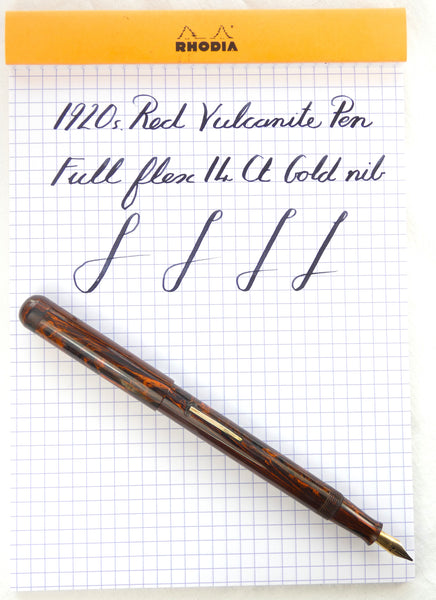 RHODIA
1920s. Red Vulcanite Pen
Full flex 14 Ct Gold nib
f f f f